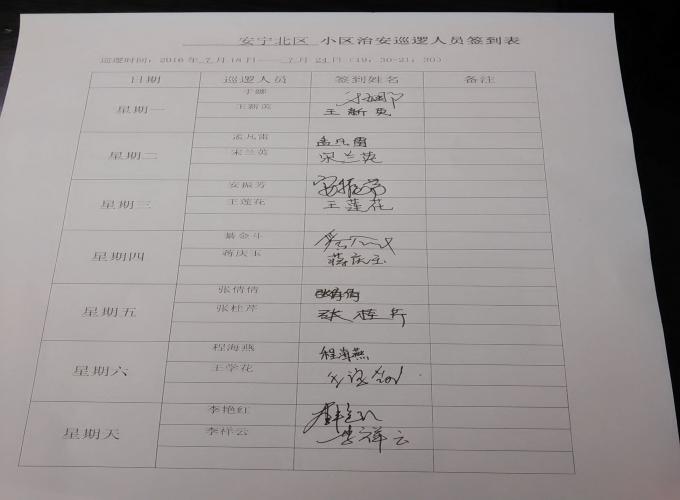 安宁北区 小区治安巡逻人员签到表
巡逻时间：2016年7月18日——7月24日（19：30-21：30）
日期 巡逻人员 签到姓名 备注
星期一 于娜 于娜
王新英 王新英
星期二 孟凡雷 孟凡雷
宋兰英 宋兰英
星期三 安振芳 安振芳
王莲花 王莲花
星期四 綦金斗
蒋庆玉 蒋庆玉
星期五 张倩倩 张倩倩
张桂芹 张桂芹
星期六 程海燕 程海燕
王学花
星期天 李艳红 李艳红
李祥云 李祥云